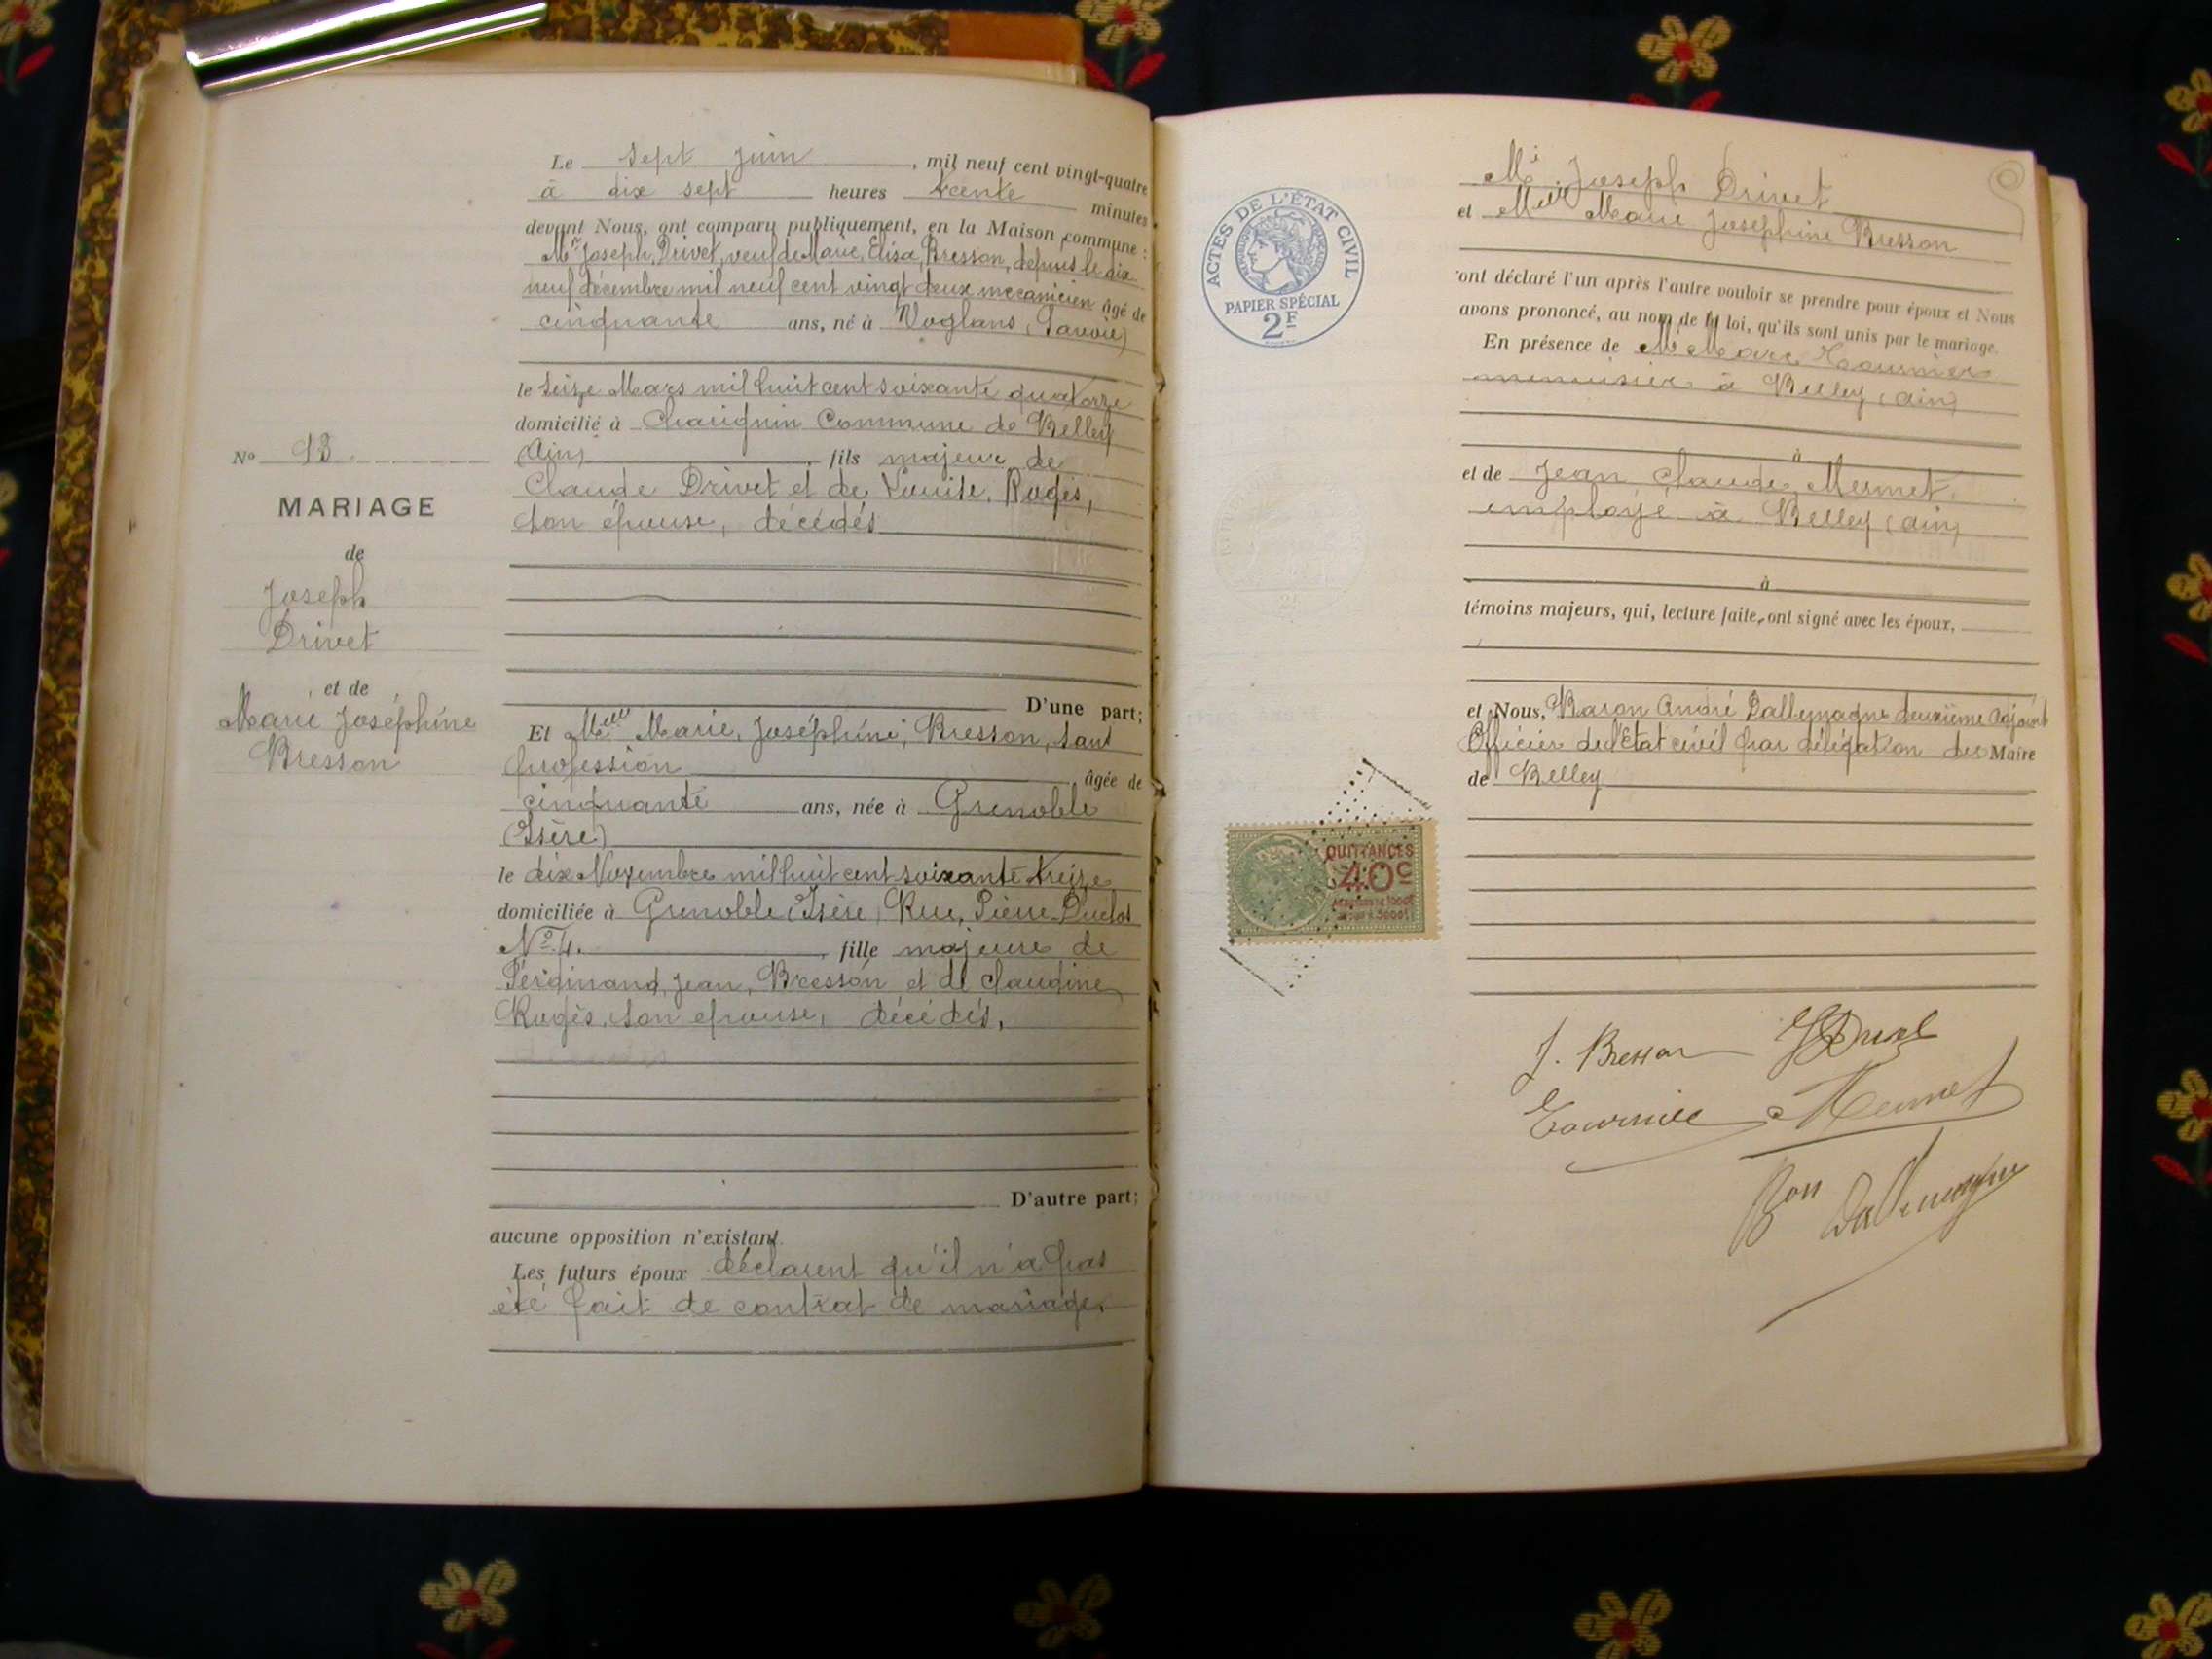 Le sept juin, mil neuf cent vingt-quatre
à dix sept heures trente minutes
devant Nous, ont comparu publiquement, en la Maison commune :
Mr Joseph, Drivet, veuf de Marie, Elisa, Bresson, depuis le dix
neuf décembre mil neuf cent vingt deux mecanicien âgé de
cinquante ans, né à Voglans (Savoie)
le seize Mars mil huit cent soixante quatorze
domicilié à Chauignin Commune de Belley
(Ain) fils majeur de
Claude Drivet et de Louise, Rugès,
son épouse, décédés
No 13.
MARIAGE
de
Joseph
Drivet
et de
Marie Joséphine
Bresson
D'une part;
Et Melle Marie, Joséphine, Bresson, sans
profession âgée de
cinquante ans, née à Grenoble
(Isère)
le dix Novembre mil huit cent soixante treize
domiciliée à Grenoble (Isère) Rue, Pierre Duclot
No 4. fille majeure de
Ferdinand, Jean, Bresson et de Claudine
Rugès, son épouse, décédés,
D'autre part;
aucune opposition n'existant.
Les futurs époux déclarent qu'il n'a pas
été fait de contrat de mariage.
ACTES DE L'ÉTAT CIVIL
RÉPUBLIQUE FRANÇAISE
PAPIER SPÉCIAL
2F
Mr Joseph Drivet
et Melle Marie Joséphine Bresson
ont déclaré l'un après l'autre vouloir se prendre pour époux et Nous
avons prononcé, au nom de la loi, qu'ils sont unis par le mariage.
En présence de Mr Marc Tournier
menuisier à Belley (ain)
à
et de Jean Claude, Mermet,
employé à Belley (ain)
à
témoins majeurs, qui, lecture faite, ont signé avec les époux,
et Nous, Baron André Dallemagne deuxième Adjoint
Officier de l'Etat civil par délégation du Maire
de Belley
QUITTANCES
40c
J. Bresson JDrivet
Tournier Mermet
Bon Dallemagne